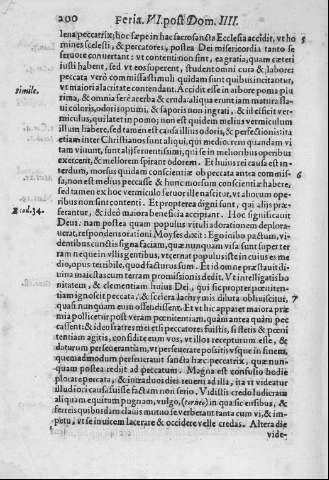 200 Feria. VI. post Dom. IIII.
lena peccatrix; hoc sæpe in hac sacrosancta Ecclesia accidit, vt ho 5
mines scelesti, & peccatores, postea Dei misericordia tanto se
feruore conuertant: vt contenti non sint, ea gratia, quam cæteri
iusti habent, sed vt eos superent, student omni cura & labore:
peccata verò commissa stimuli quidam sunt quibus incitantur,
simile. vt maiori alacritate contendant. Accidit esse in arbore poma plu
rima, & omnia ferè acerba & cruda: aliqua erunt iam matura sla-
tu coloris, odoris opumi, & saporis non ingrati, & id efficit ver-
miculus, qui latet in pomo; non est quidem melius vermiculum
illum habere, sed tamen est causa illius odoris, & perfectionis: ita
etiam inter Christianos sunt aliqui, qui mediocrem quandam vi
tam viuunt, sunt alij feruentissimi, qui se in melioribus operibus
exercent, & meliorem spirant odorem. Et huius rei causa est in-
terdum, morsus quidam conscientiæ ob peccata antea commis- 6
sa, non est melius peccasse & hunc morsum conscientiæ habere,
sed tamen ex hoc vermiculo feruor ille nascitur, vt ahorum ope-
ribus non sint contenti. Et propterea digni sunt, qui alijs præ-
Exod. 34. ferantur, & ideò maiora beneficia accipiant. Hoc significauit
Deus. nam postea quam populus vituli adorationem deplora-
uerat, respondens orationi Moyses dixit: Ego inibo pactum, vi-
dentibus cunctis signa faciam, quæ nunquam visa sunt super ter
ram nec in vllis gentibus, vt cernat populus iste in cuius es me
dio, opus terribile, quod facturus sum. Et id omne præstauit di-
uina maiestas cum terram promissionis dedit. Vt intelligatis bo
nitatem, & clementiam huius Dei, qui sic propter pœniten-
tiam ignoscit peccata. & scelera lachrymis diluta obliuiscitur, 7
quasi nunquam eum offendissent. Et vt hic apparet maiora præ
mia pollicetur post veram pœnitentiam, quàm antea quàm pec
cassent: & ideo fratres mei etsi peccatores fuistis, si fletis & pœni
tentiam agitis, confidite eum vos, vt illos recepturum esse, &
daturum perseuerantiam, vt perseueratе positis vsque in finem,
quemadmodum perseuerant sancta hæc peccatrix, quæ nun-
quam postea redijt ad peccatum. Magna est confusio hodie
plorare peccata, & intra duos dies reuerti ad illa, ita vt videatur
illud ioci causa fuisse factum non seriò. Vidistis credo ludicram
aliquam equitum pugnam, vulgo, (torneo) in qua sic ensibus, &
ferreis quibusdam clauis mutuo se verberant tanta cum vi, & im-
petu, vt se inuicem lacerare & occidere velle credas. Altera die
vide-